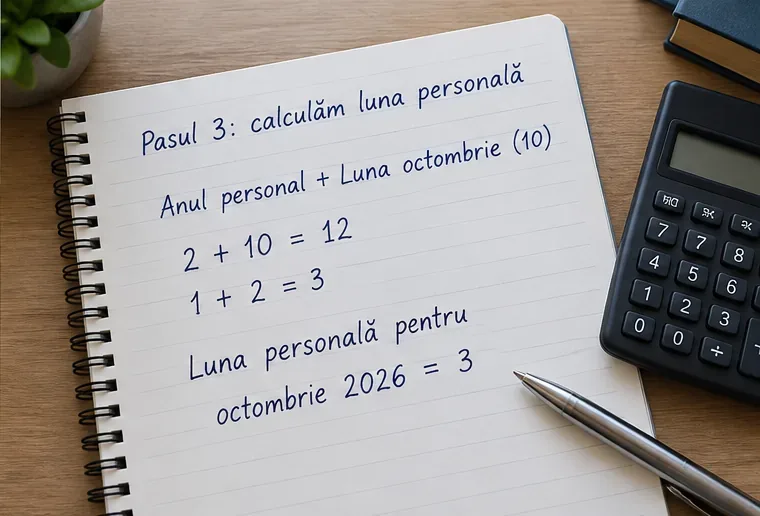 Pasul 3: calculăm luna personală
Anul personal + Luna octombrie (10)
2 + 10 = 12
1 + 2 = 3
Luna personală pentru
octombrie 2026 = 3
7 7 8
4 5 6
1 2 3
0 0 ÷